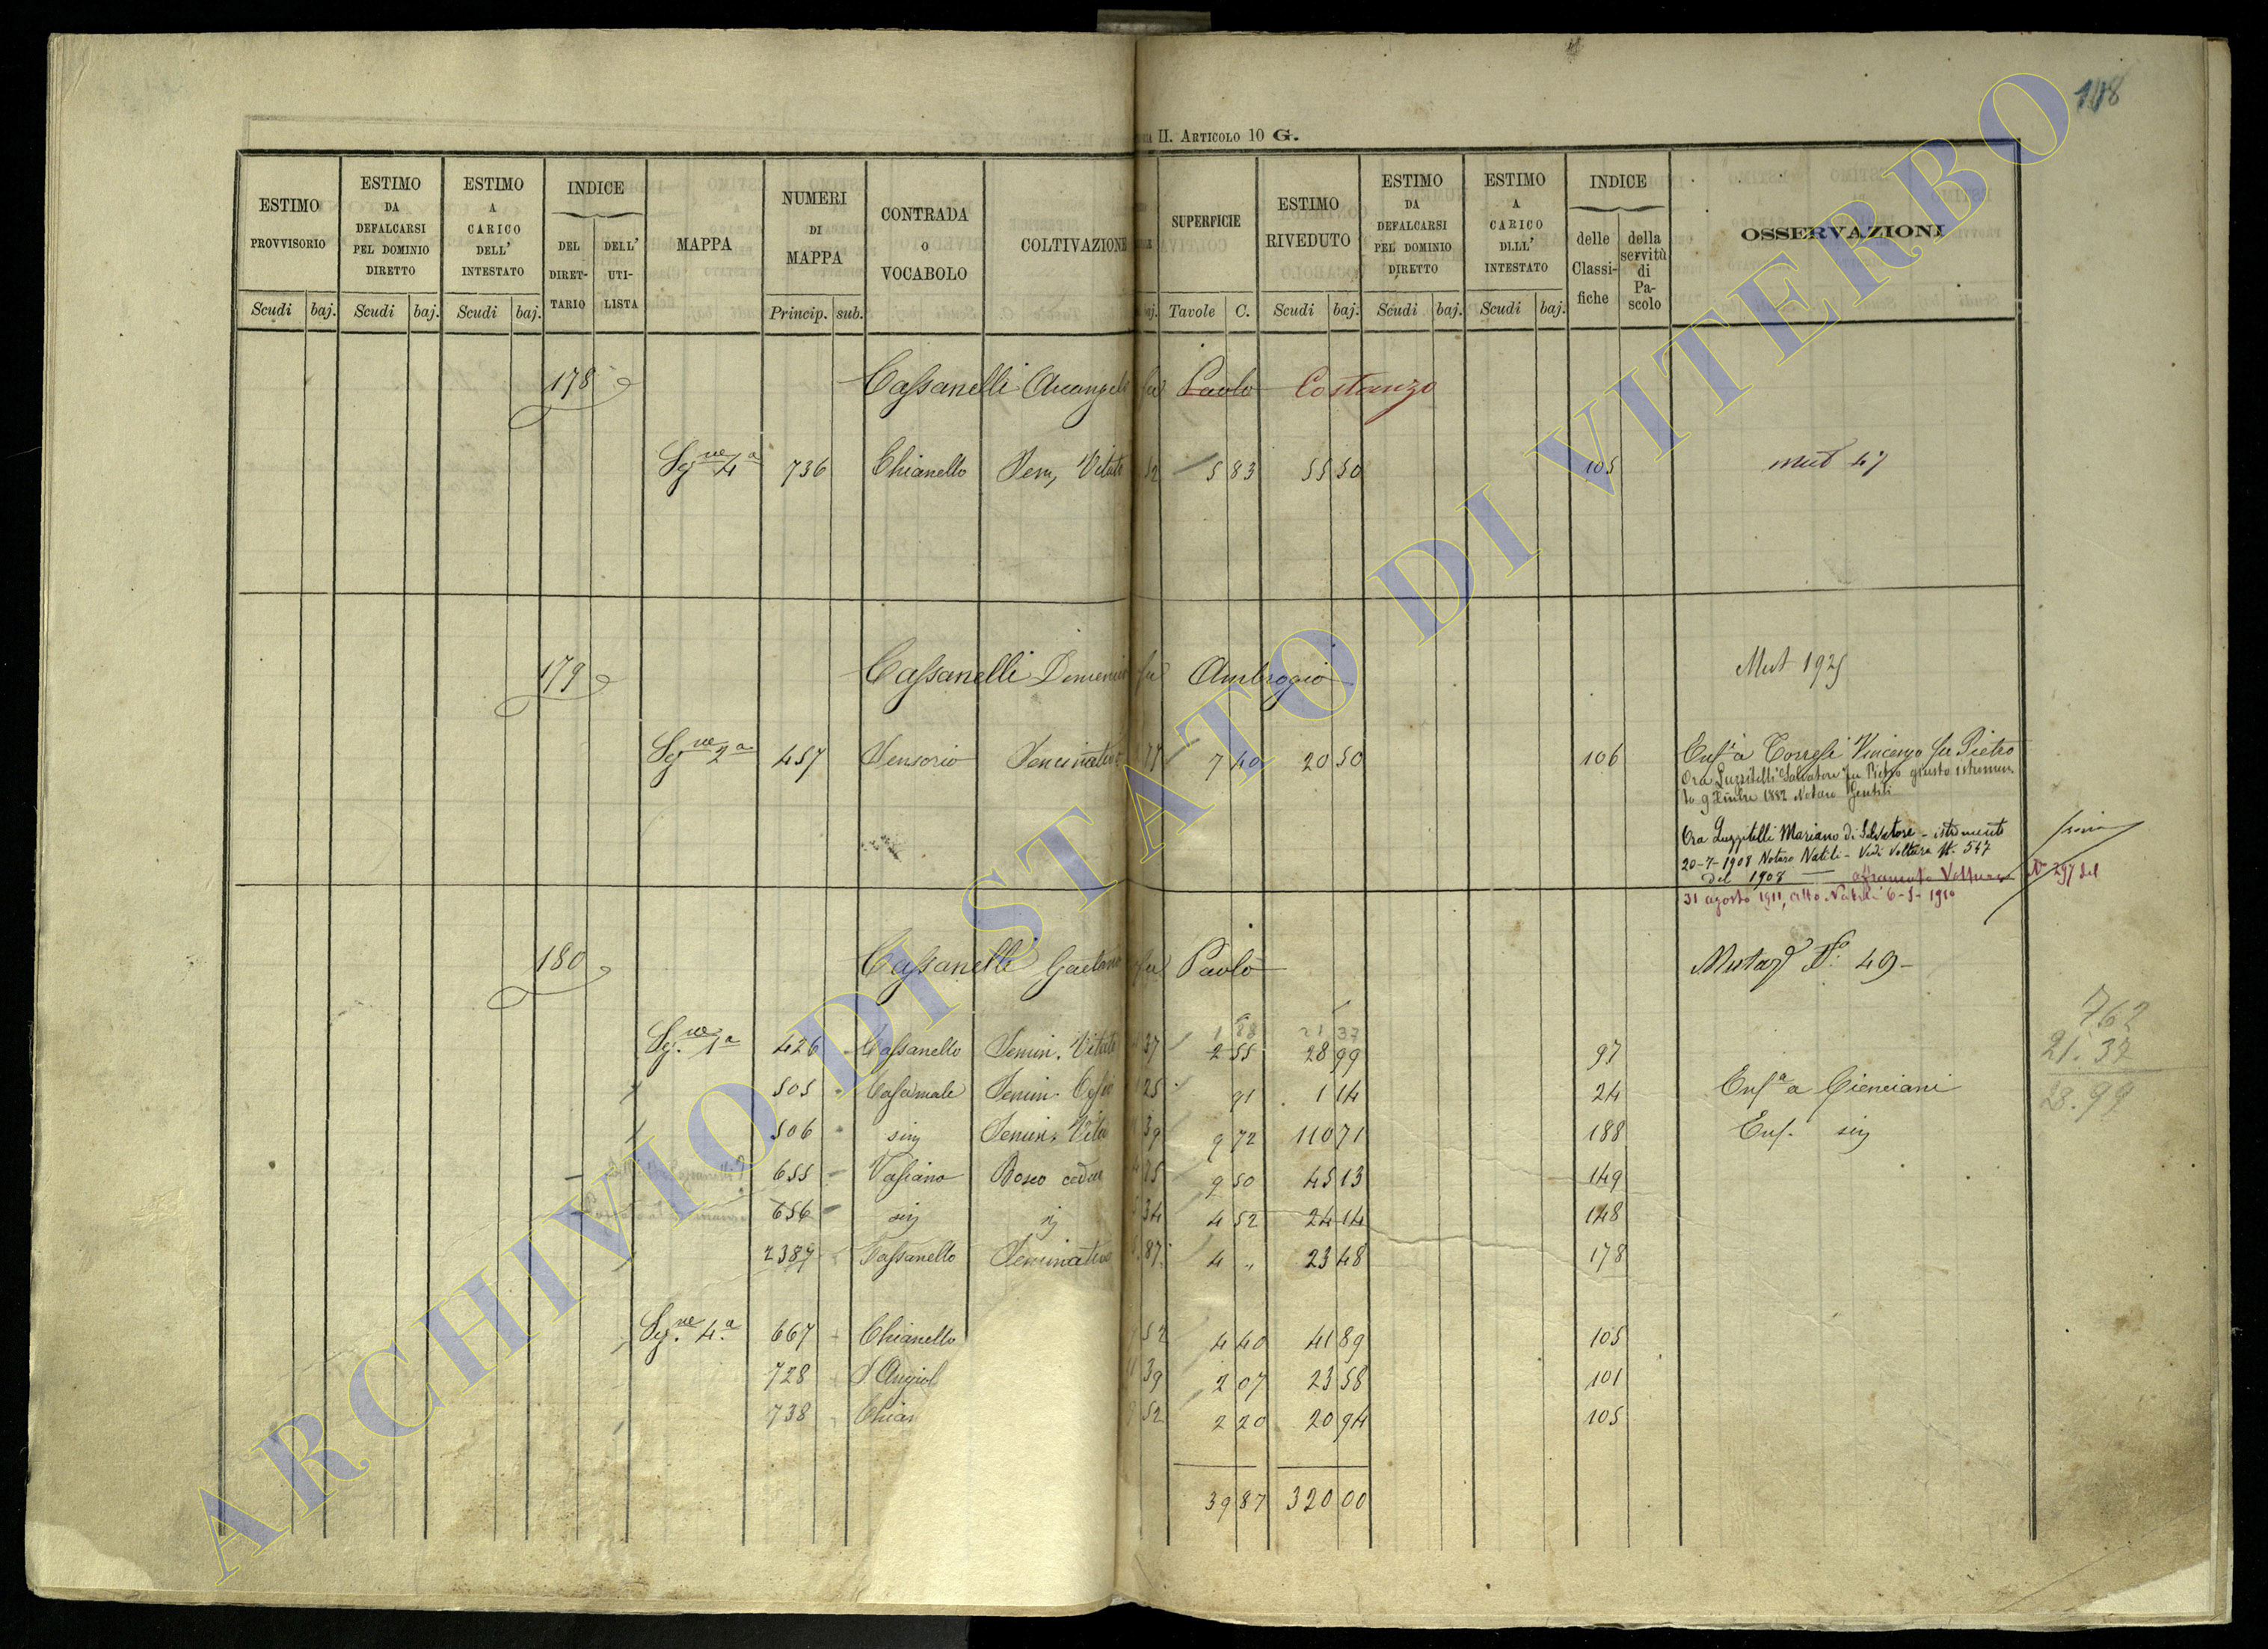 108
II. ARTICOLO 10 G.
ESTIMO PROVVISORIO
ESTIMO DA DEFALCARSI PEL DOMINIO DIRETTO
ESTIMO A CARICO DELL' INTESTATO
INDICE
DEL DIRET-TARIO
DELL' UTI-LISTA
MAPPA
NUMERI DI MAPPA
CONTRADA O VOCABOLO
COLTIVAZIONE
SUPERFICIE
ESTIMO RIVEDUTO
ESTIMO DA DEFALCARSI PEL DOMINIO DIRETTO
ESTIMO A CARICO DLLL' INTESTATO
INDICE
delle Classi-fiche
della servitù di Pa-scolo
OSSERVAZIONI
Scudi baj. Scudi baj. Scudi baj. Princip. sub. baj. Tavole C. Scudi baj. Scudi baj. Scudi baj.
178 Cassanelli Arcangelo fu Paolo Costanzo
Sez.ne 4a 736 Chianello Sem, Vitato 52 5 83 55 50 105 Mut 47
179 Cassanelli Domenico fu Ambrogio Mut 192
Sez.ne 2a 457 Sensorio Seminativo 77 7 40 20 50 106 Enf.a a Vincenzo fu Pietro
Ora Luzzitelli Salvatore fu Pietro giusto istrumen
to 9 1882 Notaro Gentili
Ora Luzzitelli Mariano di Salvatore - istrumento
20-7-1908 Notaro Natili - Vedi Voltura N. 547
del 1908 Voltura N° 297 del
31 agosto 1911, atto Natili 6-5-1910
180 Cassanelli Gaetano fu Paolo N.° 49
1 88 21 37
Sez.ne 1a 426 Cassanello Semin. Vitato 37 2 55 28 99 97
505 Casamale Semin. 25 91 1 14 24 Enf.a a Cienciani
506 sim Semin. Vita 39 9 72 110 71 188 Enf. sim
655 Vassiano Bosco ceduo 85 9 50 45 13 149
656 sim 34 4 52 24 14 148
2387 Cassanello Seminativo 87 4 " 23 48 178
Sez.ne 4.a 667 Chianello 52 4 40 41 89 105
728 S. Angiol 39 2 07 23 58 101
738 Chian 52 2 20 20 94 105
39 87 320 00
7.62
21.37
28.99
ARCHIVIO DI STATO DI VITERBO